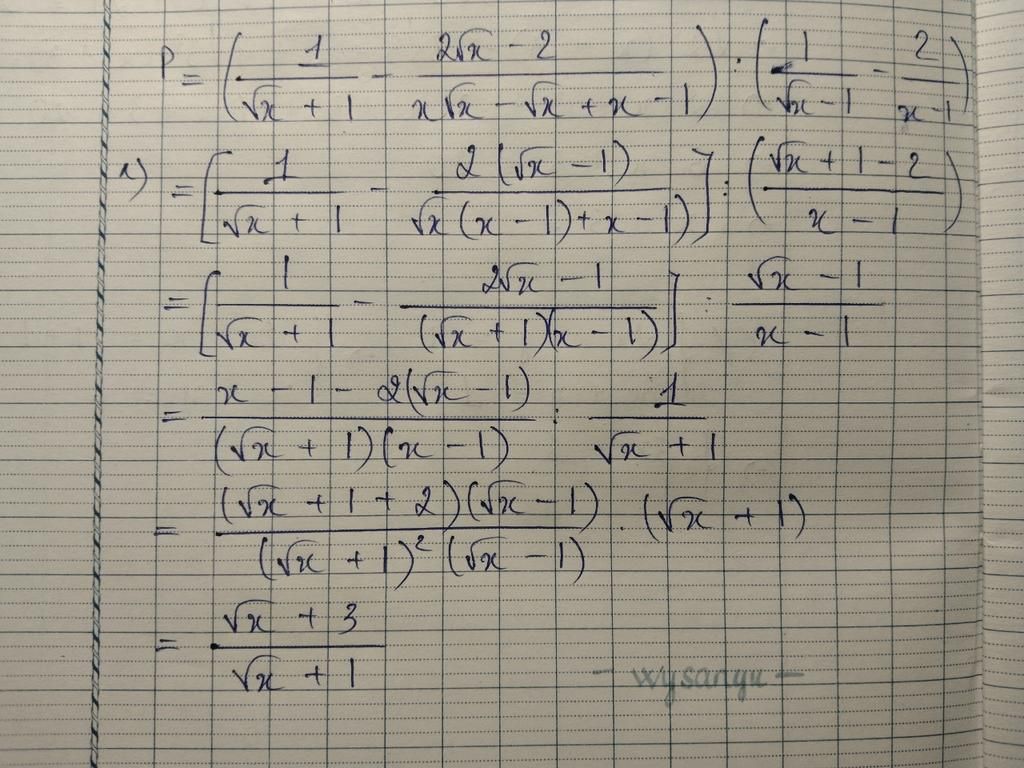 P = ( 1 / (√x + 1) - (2√x - 2) / (x√x - √x + x - 1) ) : ( 1 / (√x - 1) - 2 / (x - 1) )
1) = [ 1 / (√x + 1) - 2(√x - 1) / (√x(x - 1) + x - 1) ] : ( (√x + 1 - 2) / (x - 1) )
= [ 1 / (√x + 1) - (2√x - 1) / ((√x + 1)(x - 1)) ] : (√x - 1) / (x - 1)
= (x - 1 - 2(√x - 1)) / ((√x + 1)(x - 1)) : 1 / (√x + 1)
= ((√x + 1 + 2)(√x - 1)) / ((√x + 1)² (√x - 1)) . (√x + 1)
= (√x + 3) / (√x + 1)
- wysanyu -